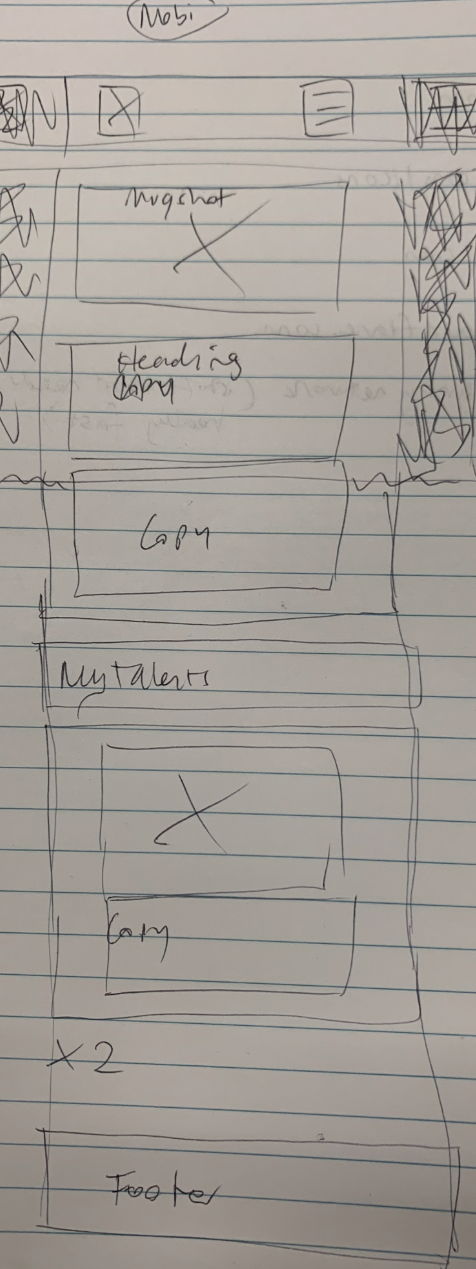 Mobi
Mugshot
Heading
Copy
Copy
My Talents
Copy
X 2
Footer